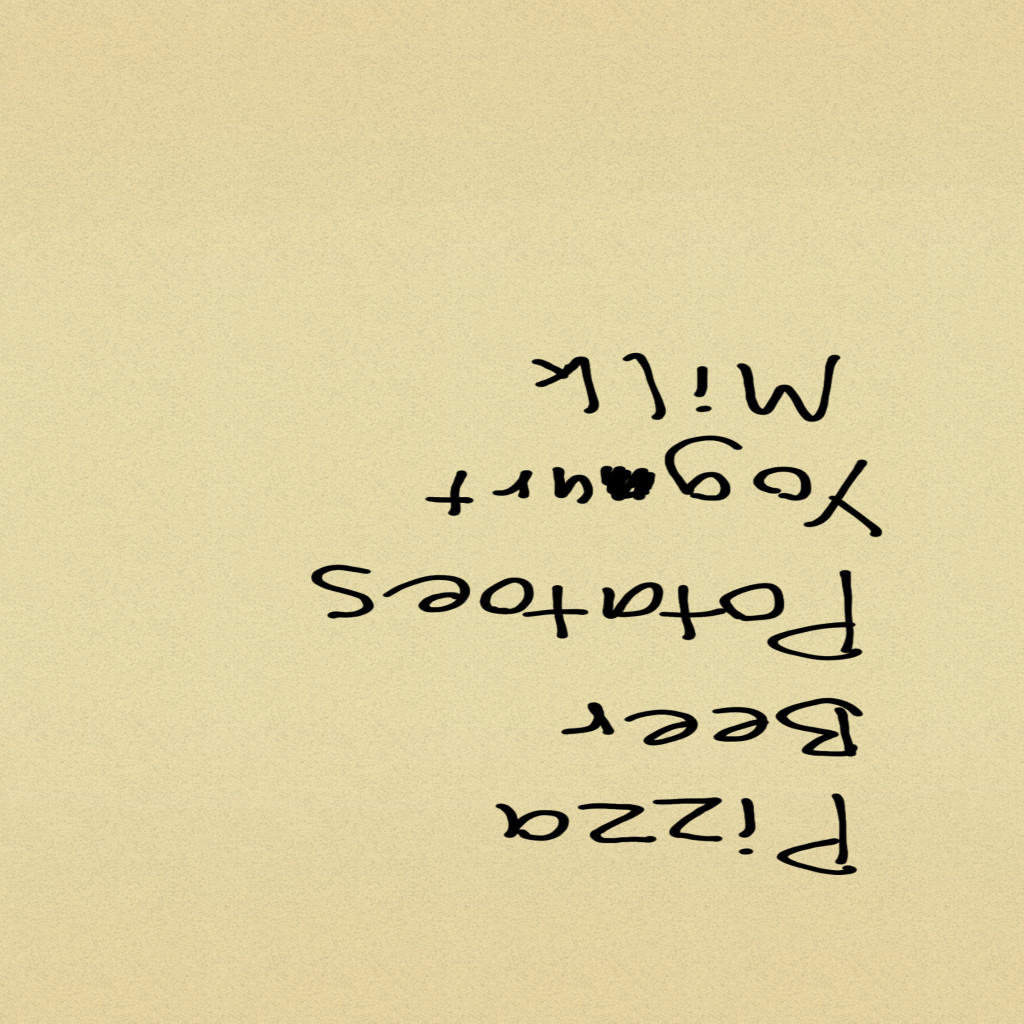 Pizza
Beer
Potatoes
Yogurt
Milk